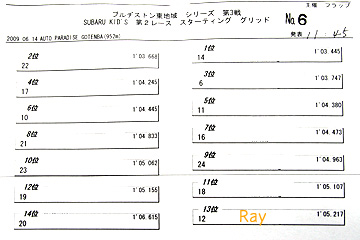 ブルヂストン東地域 シリーズ 第3戦
SUBARU KID'S 第2レース スターティング グリッド
No.6
2009 06 14 AUTO PARADISE GOTENBA(957m)
発表 11:45
1位
14 1'03.445
2位
22 1'03.668
3位
6 1'03.747
4位
17 1'04.245
5位
11 1'04.380
6位
10 1'04.445
7位
16 1'04.473
8位
21 1'04.833
9位
24 1'04.963
10位
23 1'05.062
11位
18 1'05.107
12位
19 1'05.155
13位
12 Ray 1'05.217
14位
20 1'06.615